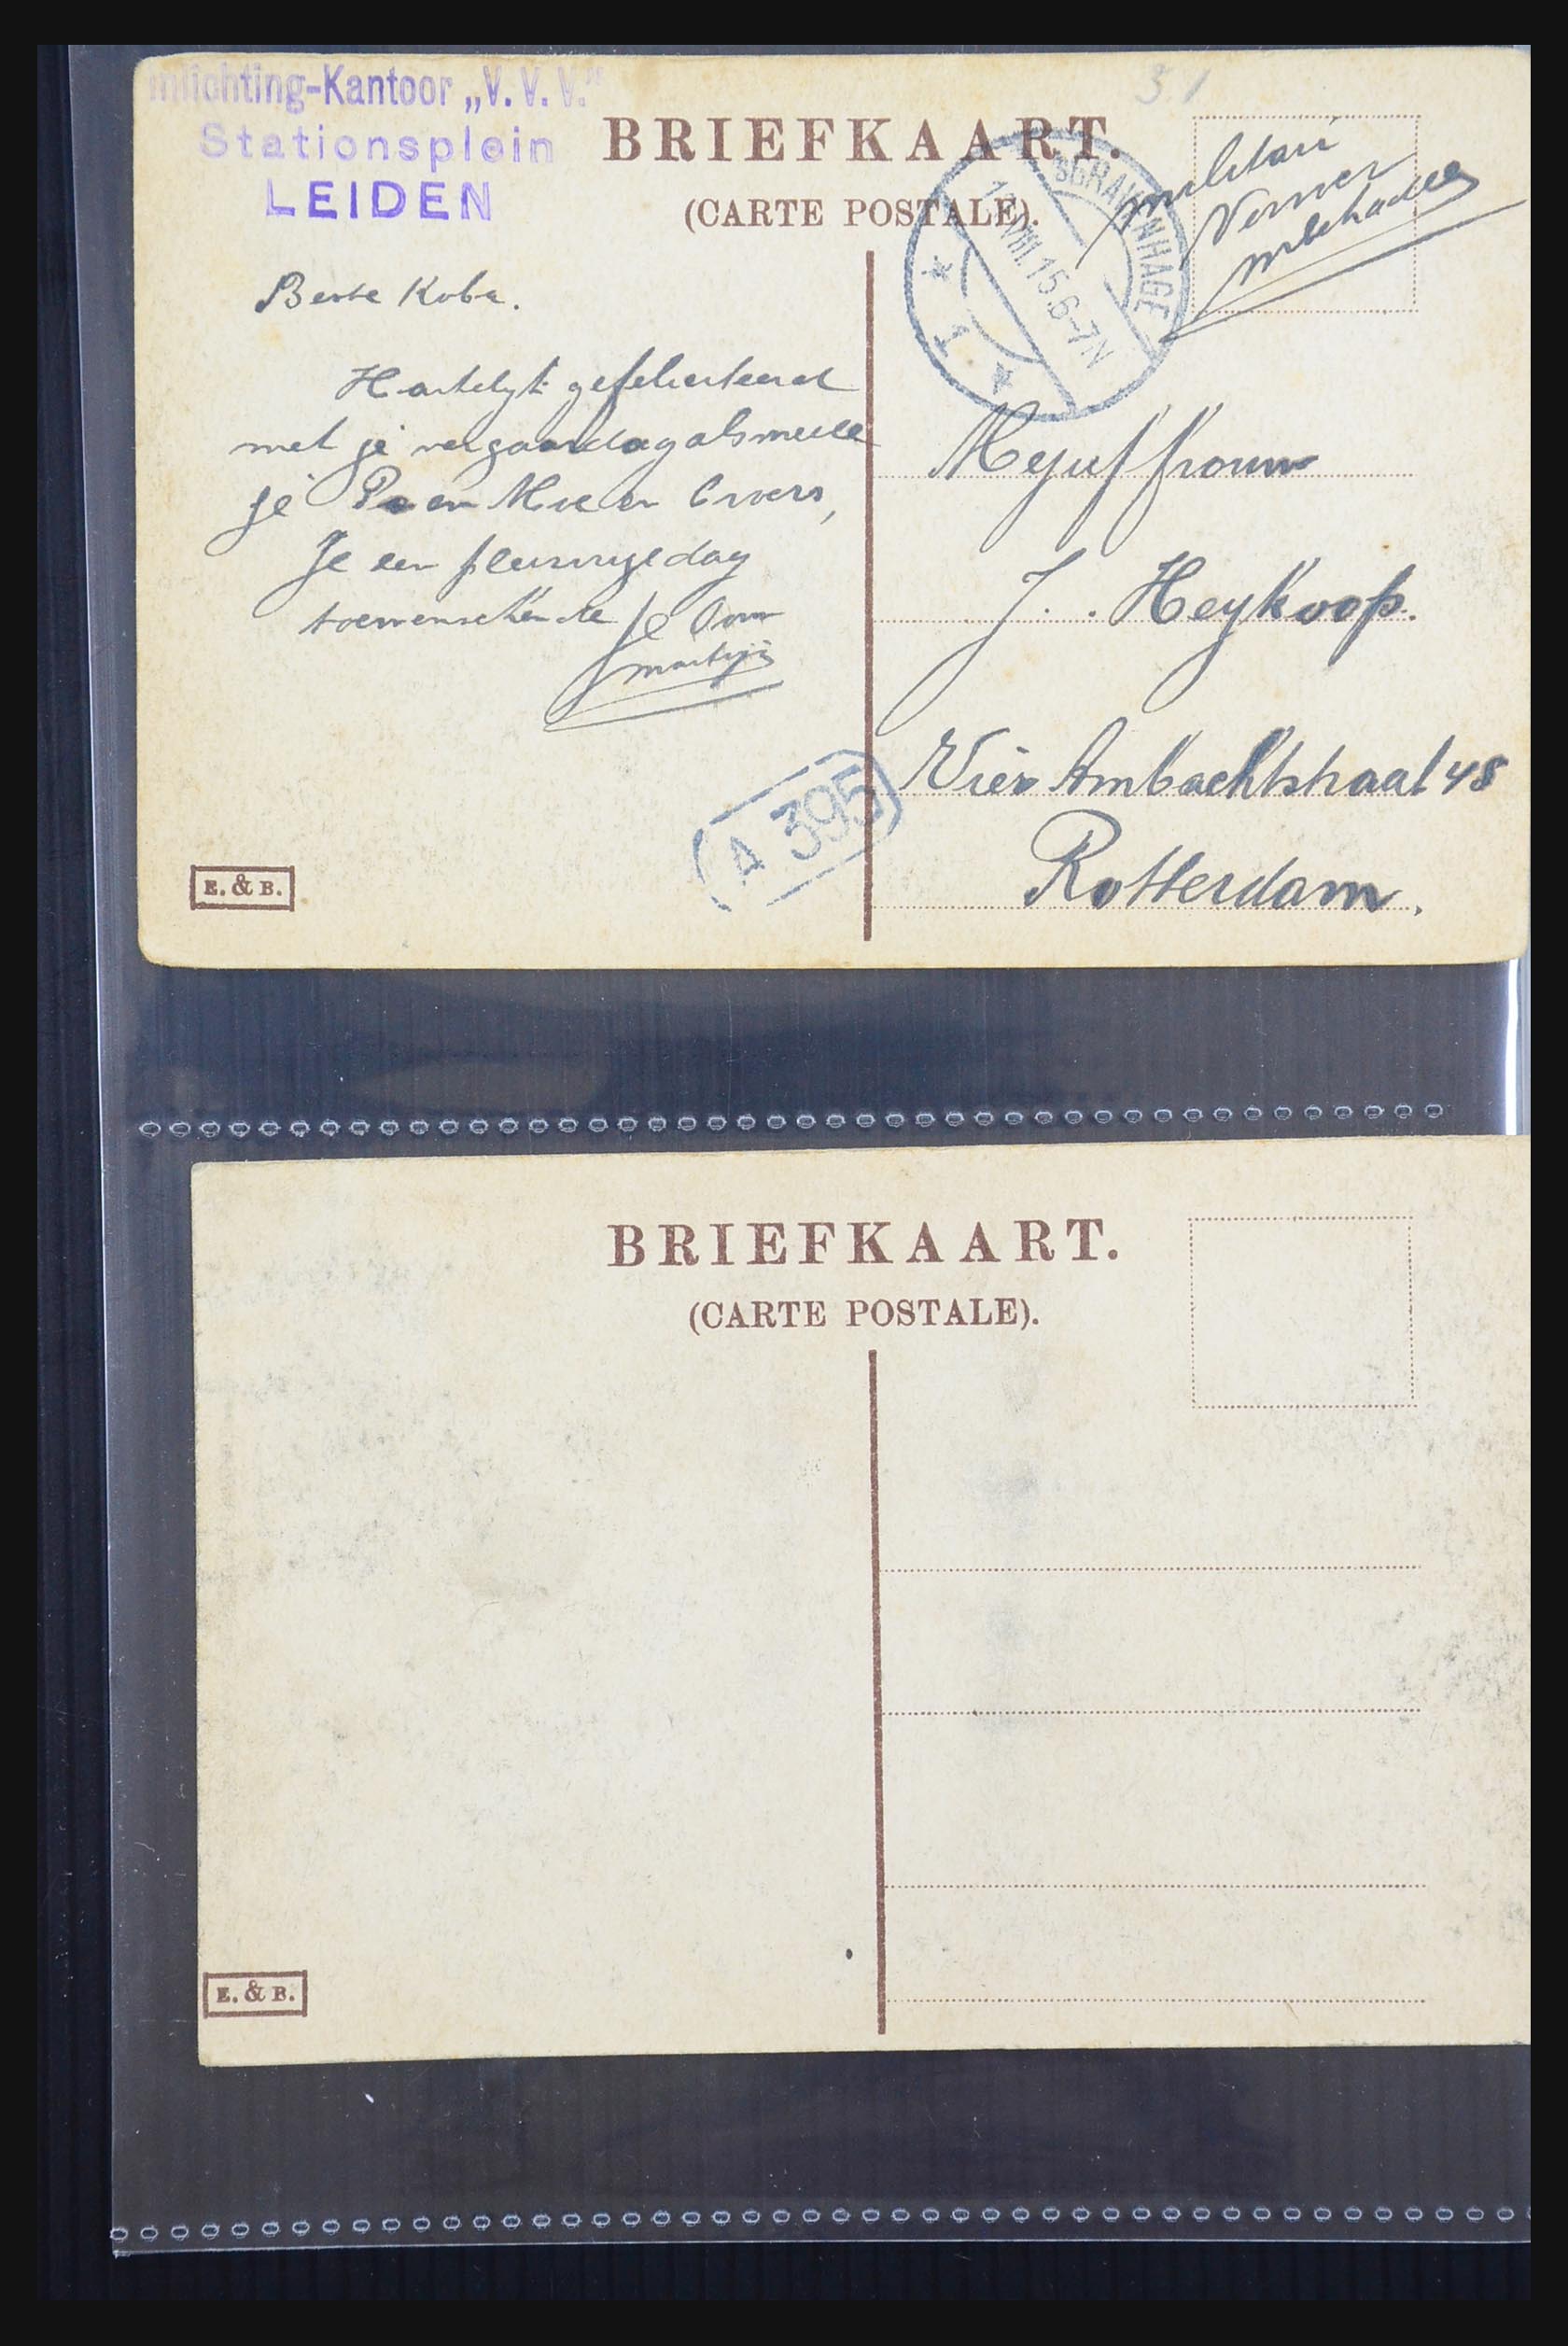 nlichting-Kantoor „V. V. V.”
Stationsplein
LEIDEN
51
BRIEFKAART.
(CARTE POSTALE).
SGRAVENHAGE
VIII.15.6-7N
1
militair
Beste Koba.
Hartelyk gefeliciteerd
met je verjaardag alsmede
je Pa en Moe en broers,
Je een pleizierige dag
toewenschende Je Oom
Martijn
Mejuffrouw
J. Heykoop.
Vier Ambachtstraat 48
Rotterdam.
A 395
E. & B.
BRIEFKAART.
(CARTE POSTALE).
E. & B.